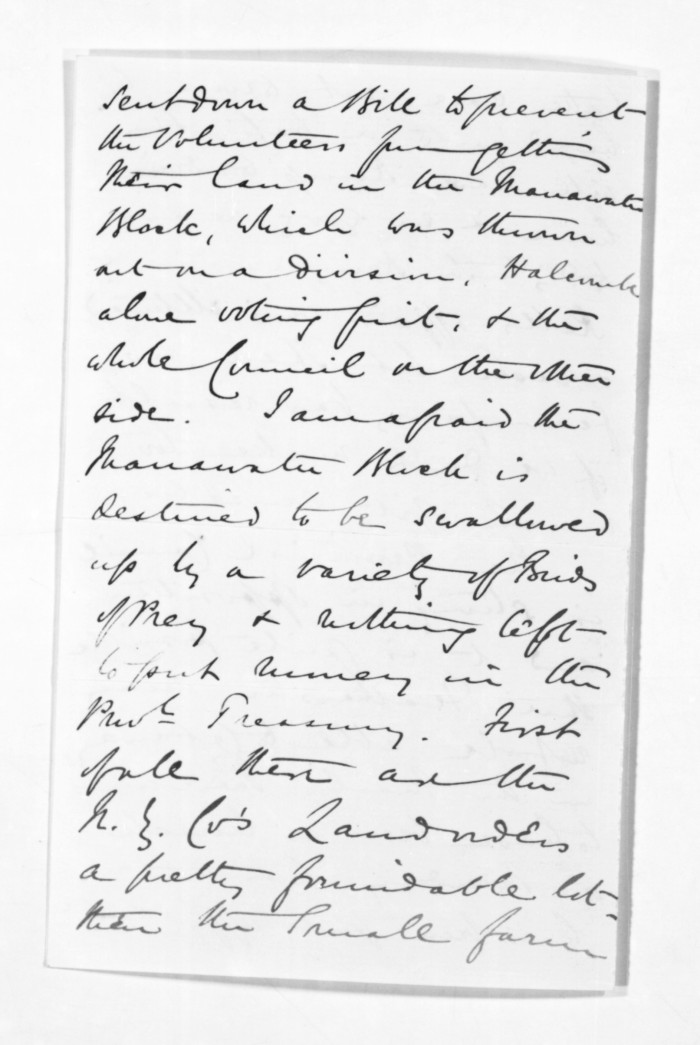 sent down a Bill to prevent
the Volunteers from getting
their land in the Manawatu
Block, which was thrown
out on a division, Halcombe
alone voting for it, & the
whole Council on the other
side. I am afraid the
Manawatu Block is
destined to be swallowed
up by a variety of Birds
of Prey & nothing left
to put money in the
Provl. Treasury. First
of all there are the
N. Z. Co's Landorders
a pretty formidable lot -
then the Small farm